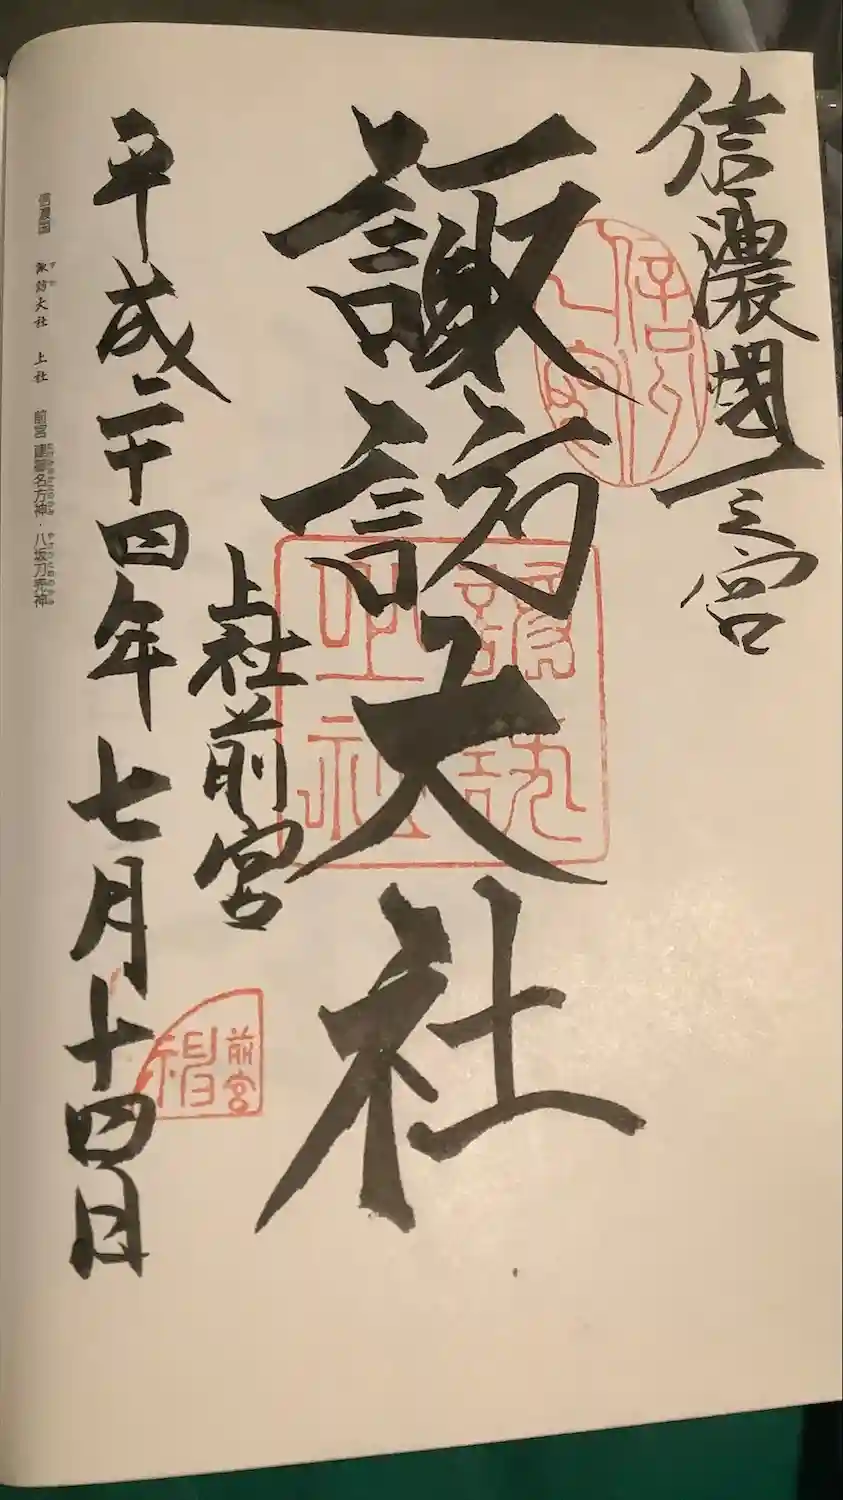 信濃國一之宮
諏訪大社
上社前宮
平成二十四年七月十四日
前宮
信濃国 諏訪大社 上社 前宮 建御名方神・八坂刀売神